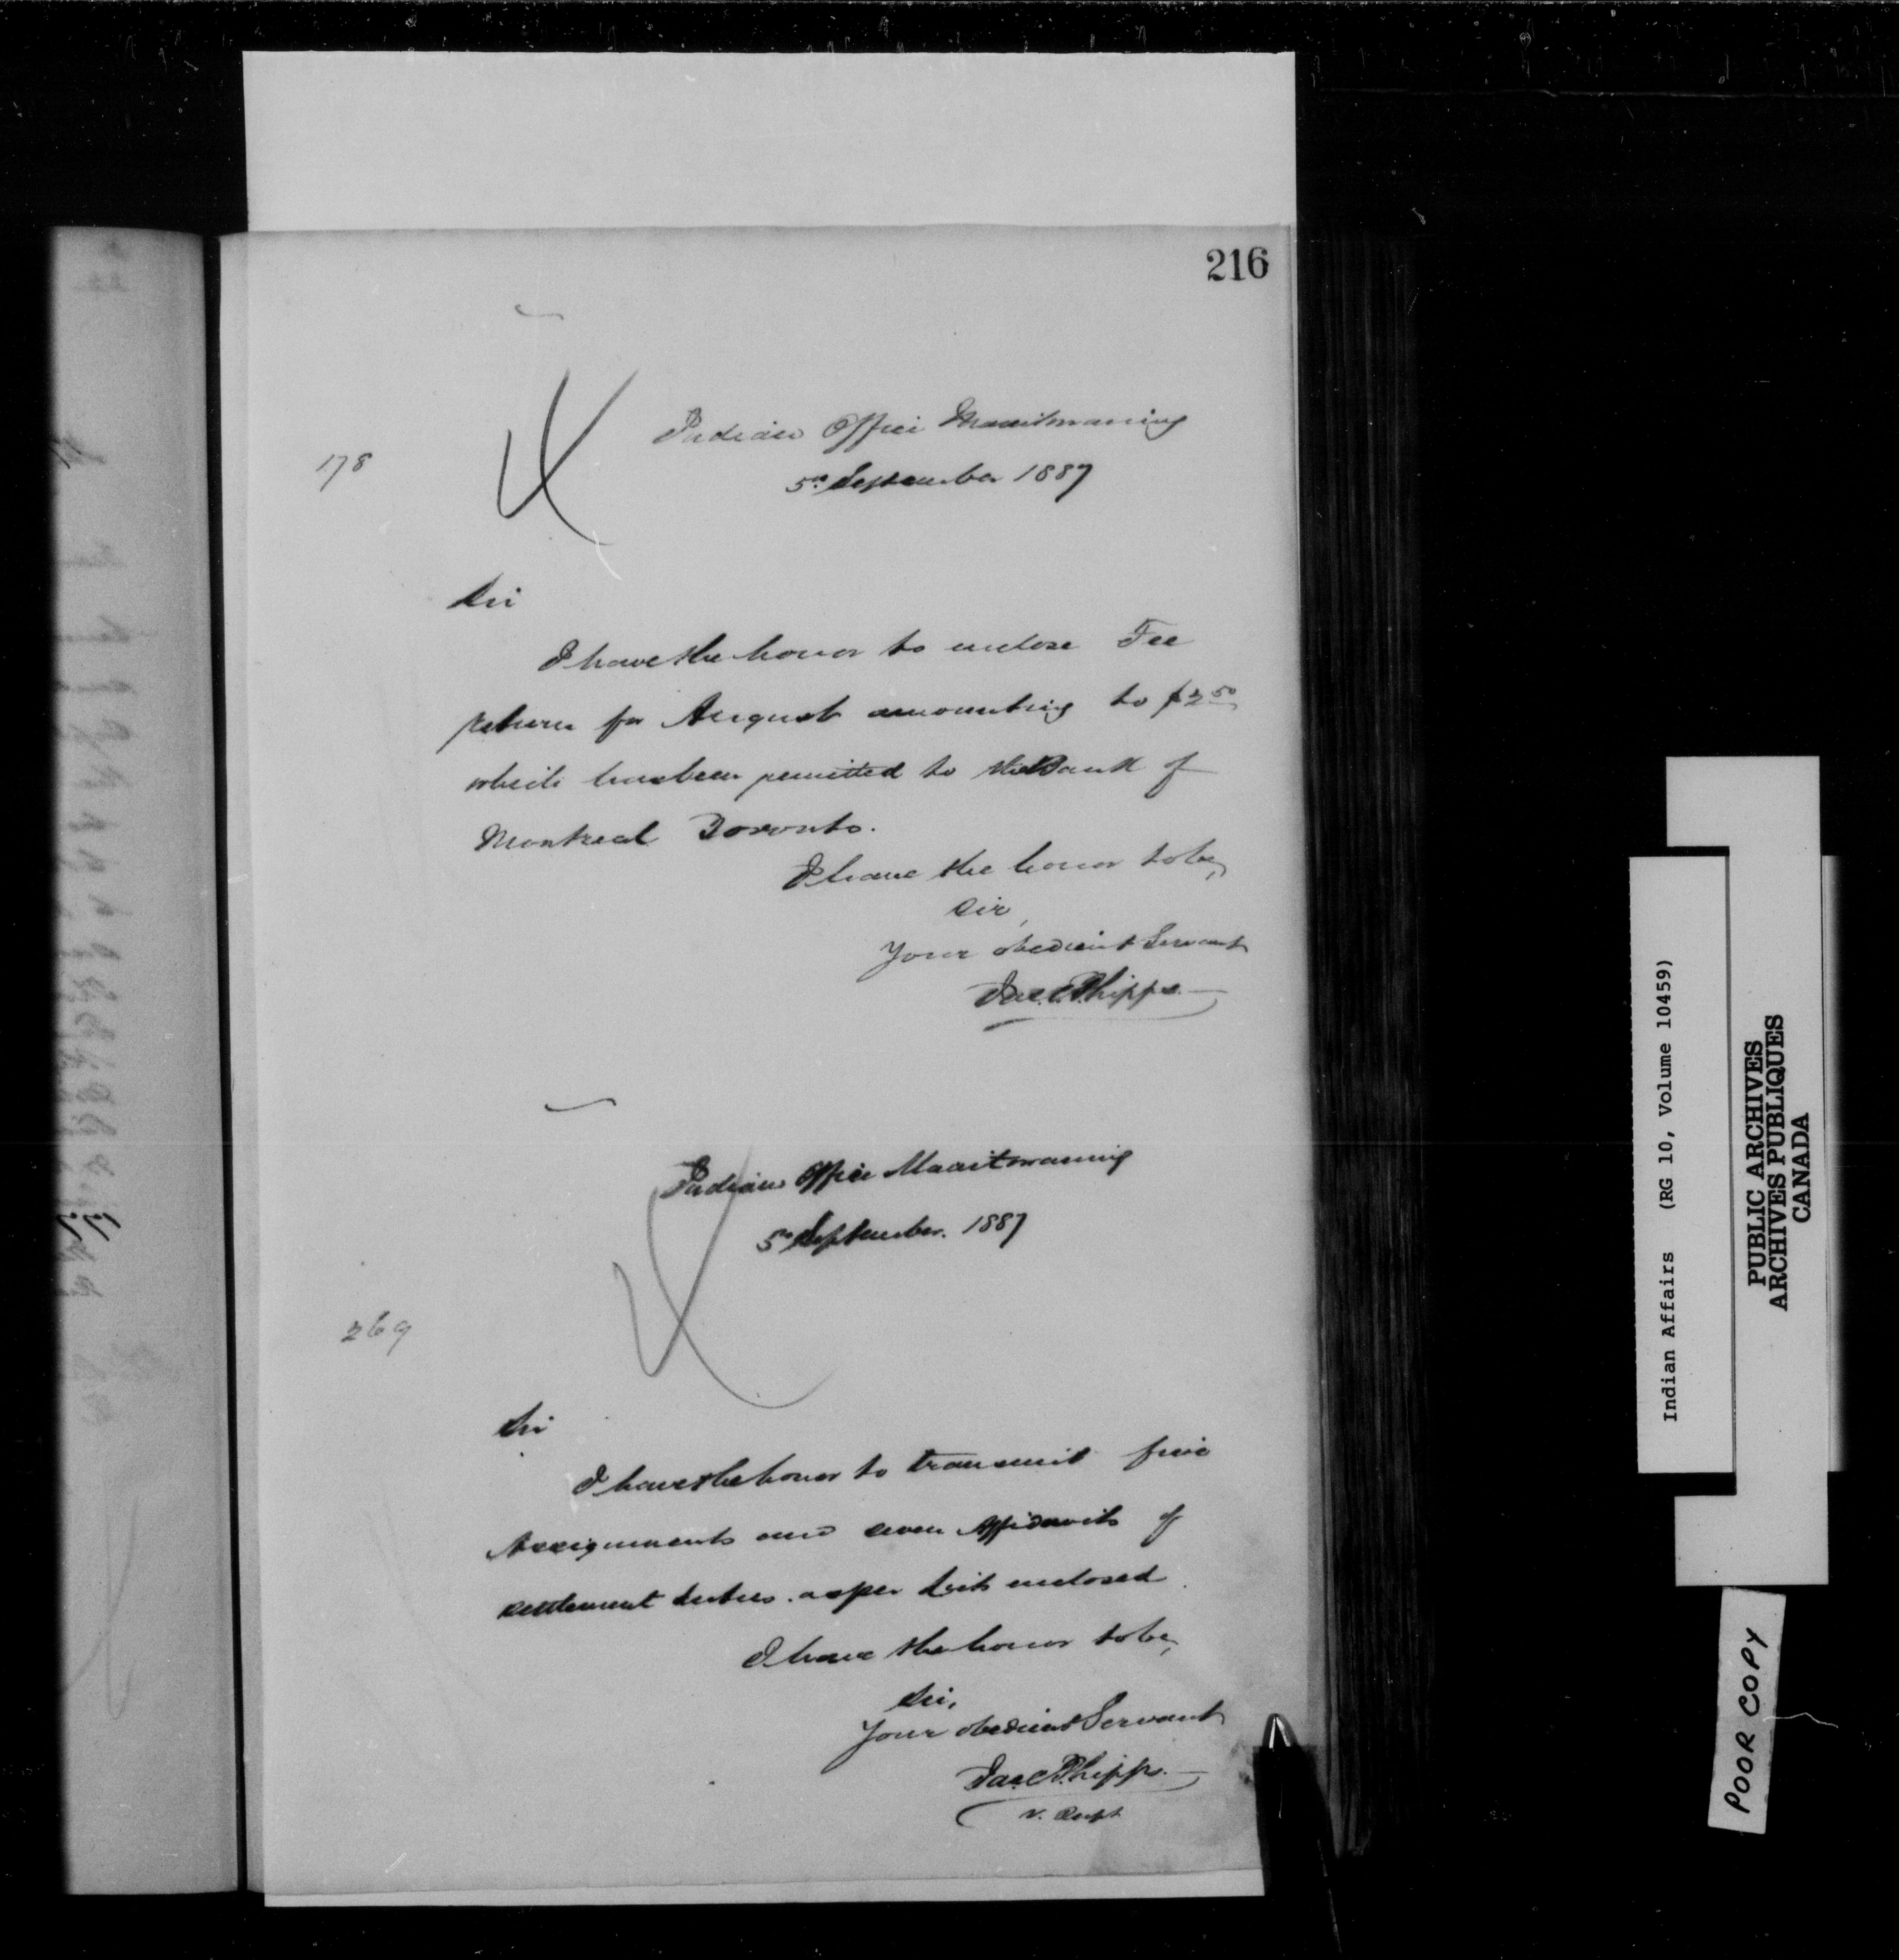 216
178
Indian Office Manitowaning
5th September 1887
Sir
I have the honor to enclose Fee
return for August amounting to $2.50
which has been remitted to the Bank of
Montreal Toronto.
I have the honor to be,
Sir,
Your obedient Servant
Jas. C. Phipps.
Indian Office Manitowaning
5th September. 1887
269
Sir
I have the honor to transmit five
Assignments and seven Affidavits of
settlement duties. as per list enclosed.
I have the honor to be,
Sir,
Your obedient Servant
Jas. C. Phipps.
V. Supt
Indian Affairs (RG 10, Volume 10459)
PUBLIC ARCHIVES
ARCHIVES PUBLIQUES
CANADA
POOR COPY